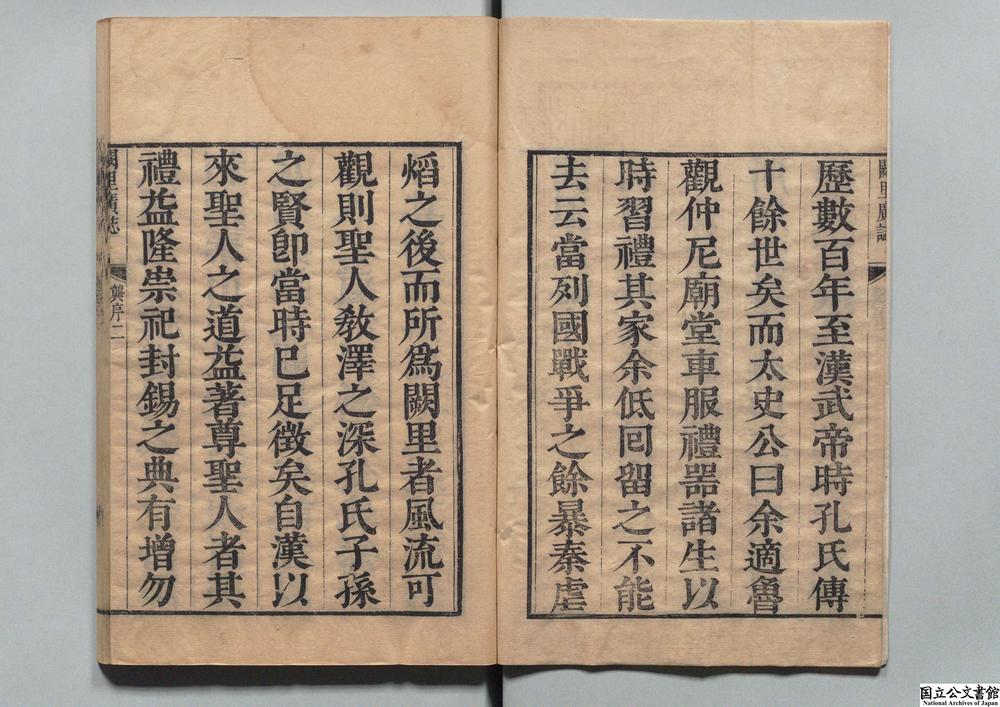 歷數百年至漢武帝時孔氏傳
十餘世矣而太史公曰余適魯
觀仲尼廟堂車服禮器諸生以
時習禮其家余低回留之不能
去云當列國戰爭之餘暴秦虐
熖之後而所爲闕里者風流可
觀則聖人敎澤之深孔氏子孫
之賢卽當時已足徵矣自漢以
來聖人之道益著尊聖人者其
禮益隆崇祀封錫之典有增勿
闕里廣誌
龔序二
国立公文書館
National Archives of Japan